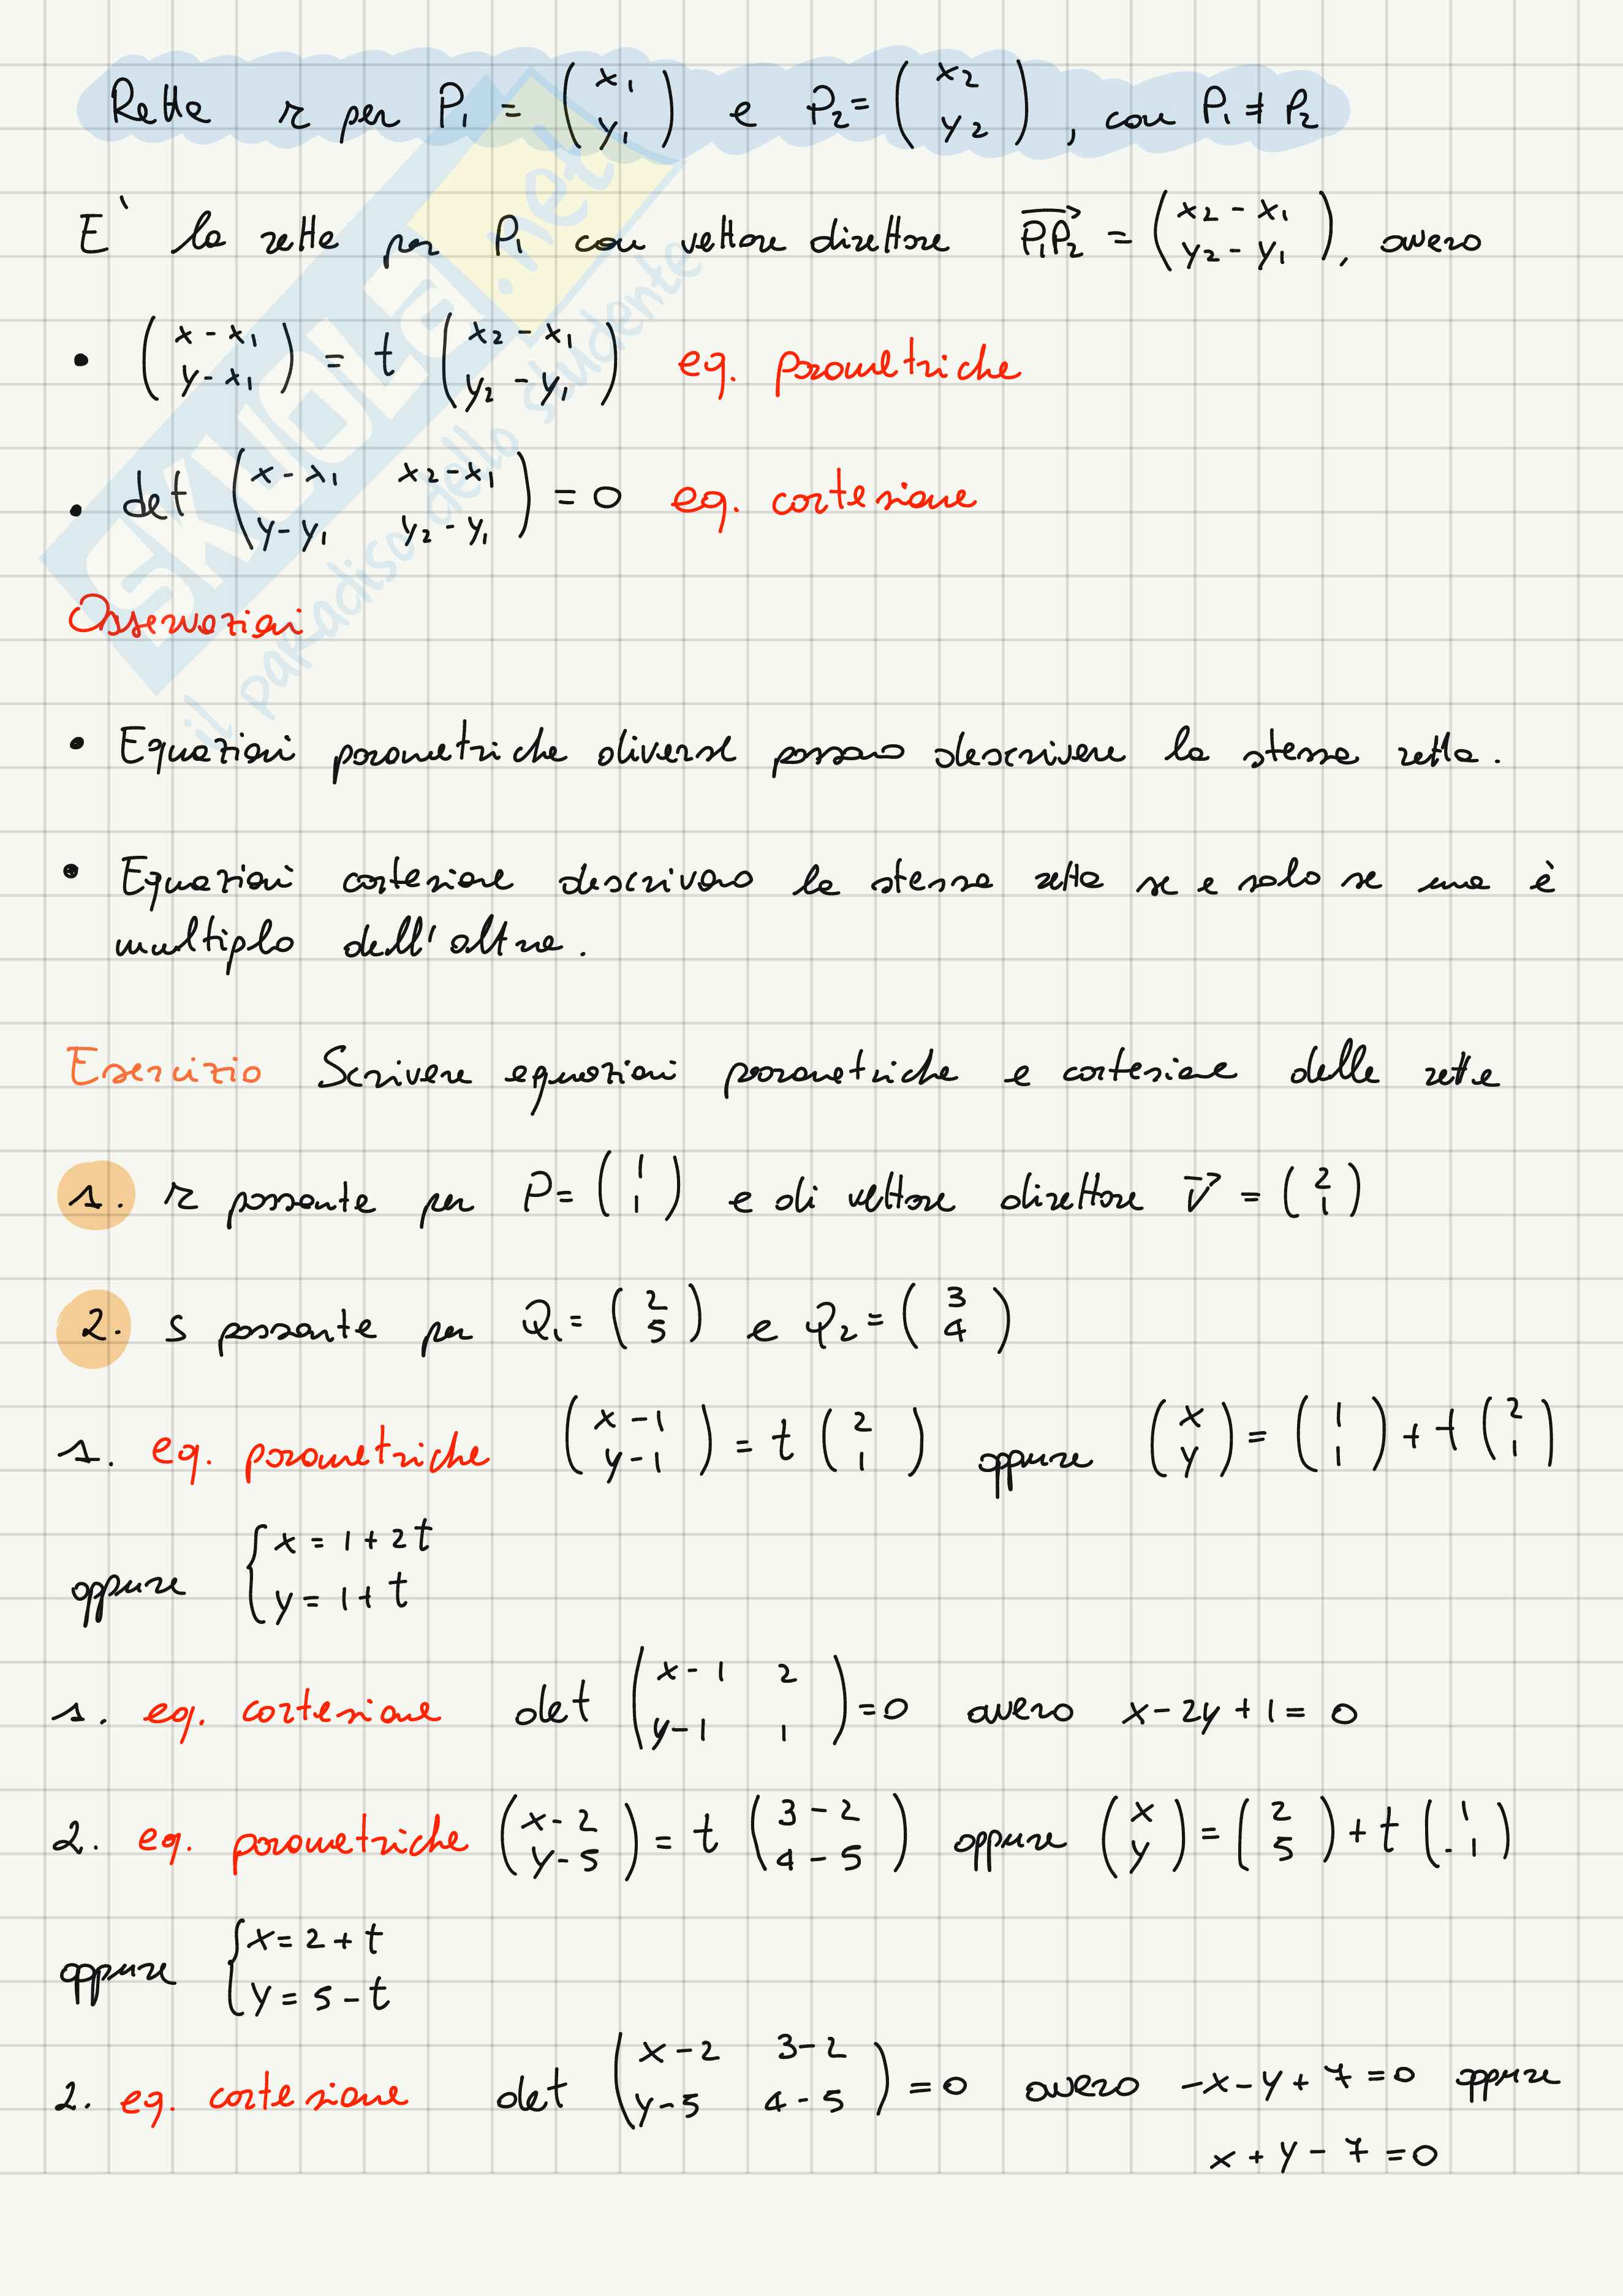 Retta r per P₁ = (x₁ y₁) e P₂ = (x₂ y₂), con P₁ ≠ P₂
E` la retta per P₁ con vettore direttore P₁P₂→ = (x₂ - x₁ y₂ - y₁), ovvero
• (x - x₁ y - x₁) = t (x₂ - x₁ y₂ - y₁) eq. parametriche
• det (x - x₁ x₂ - x₁ y - y₁ y₂ - y₁) = 0 eq. cartesiane
Osservazioni
• Equazioni parametriche diverse possono descrivere la stessa retta.
• Equazioni cartesiane descrivono la stessa retta se e solo se una è
multiplo dell'altra.
Esercizio Scrivere equazioni parametriche e cartesiane delle rette
1. r passante per P = (1 1) e di vettore direttore v→ = (2 1)
2. s passante per Q₁ = (2 5) e Q₂ = (3 4)
1. eq. parametriche (x - 1 y - 1) = t (2 1) oppure (x y) = (1 1) + t (2 1)
oppure { x = 1 + 2t
y = 1 + t
1. eq. cartesiane det (x - 1 2 y - 1 1) = 0 ovvero x - 2y + 1 = 0
2. eq. parametriche (x - 2 y - 5) = t (3 - 2 4 - 5) oppure (x y) = (2 5) + t (1 -1)
oppure { x = 2 + t
y = 5 - t
2. eq. cartesiane det (x - 2 3 - 2 y - 5 4 - 5) = 0 ovvero -x - y + 7 = 0 oppure
x + y - 7 = 0
SKUOLA.net
il paradiso dello studente